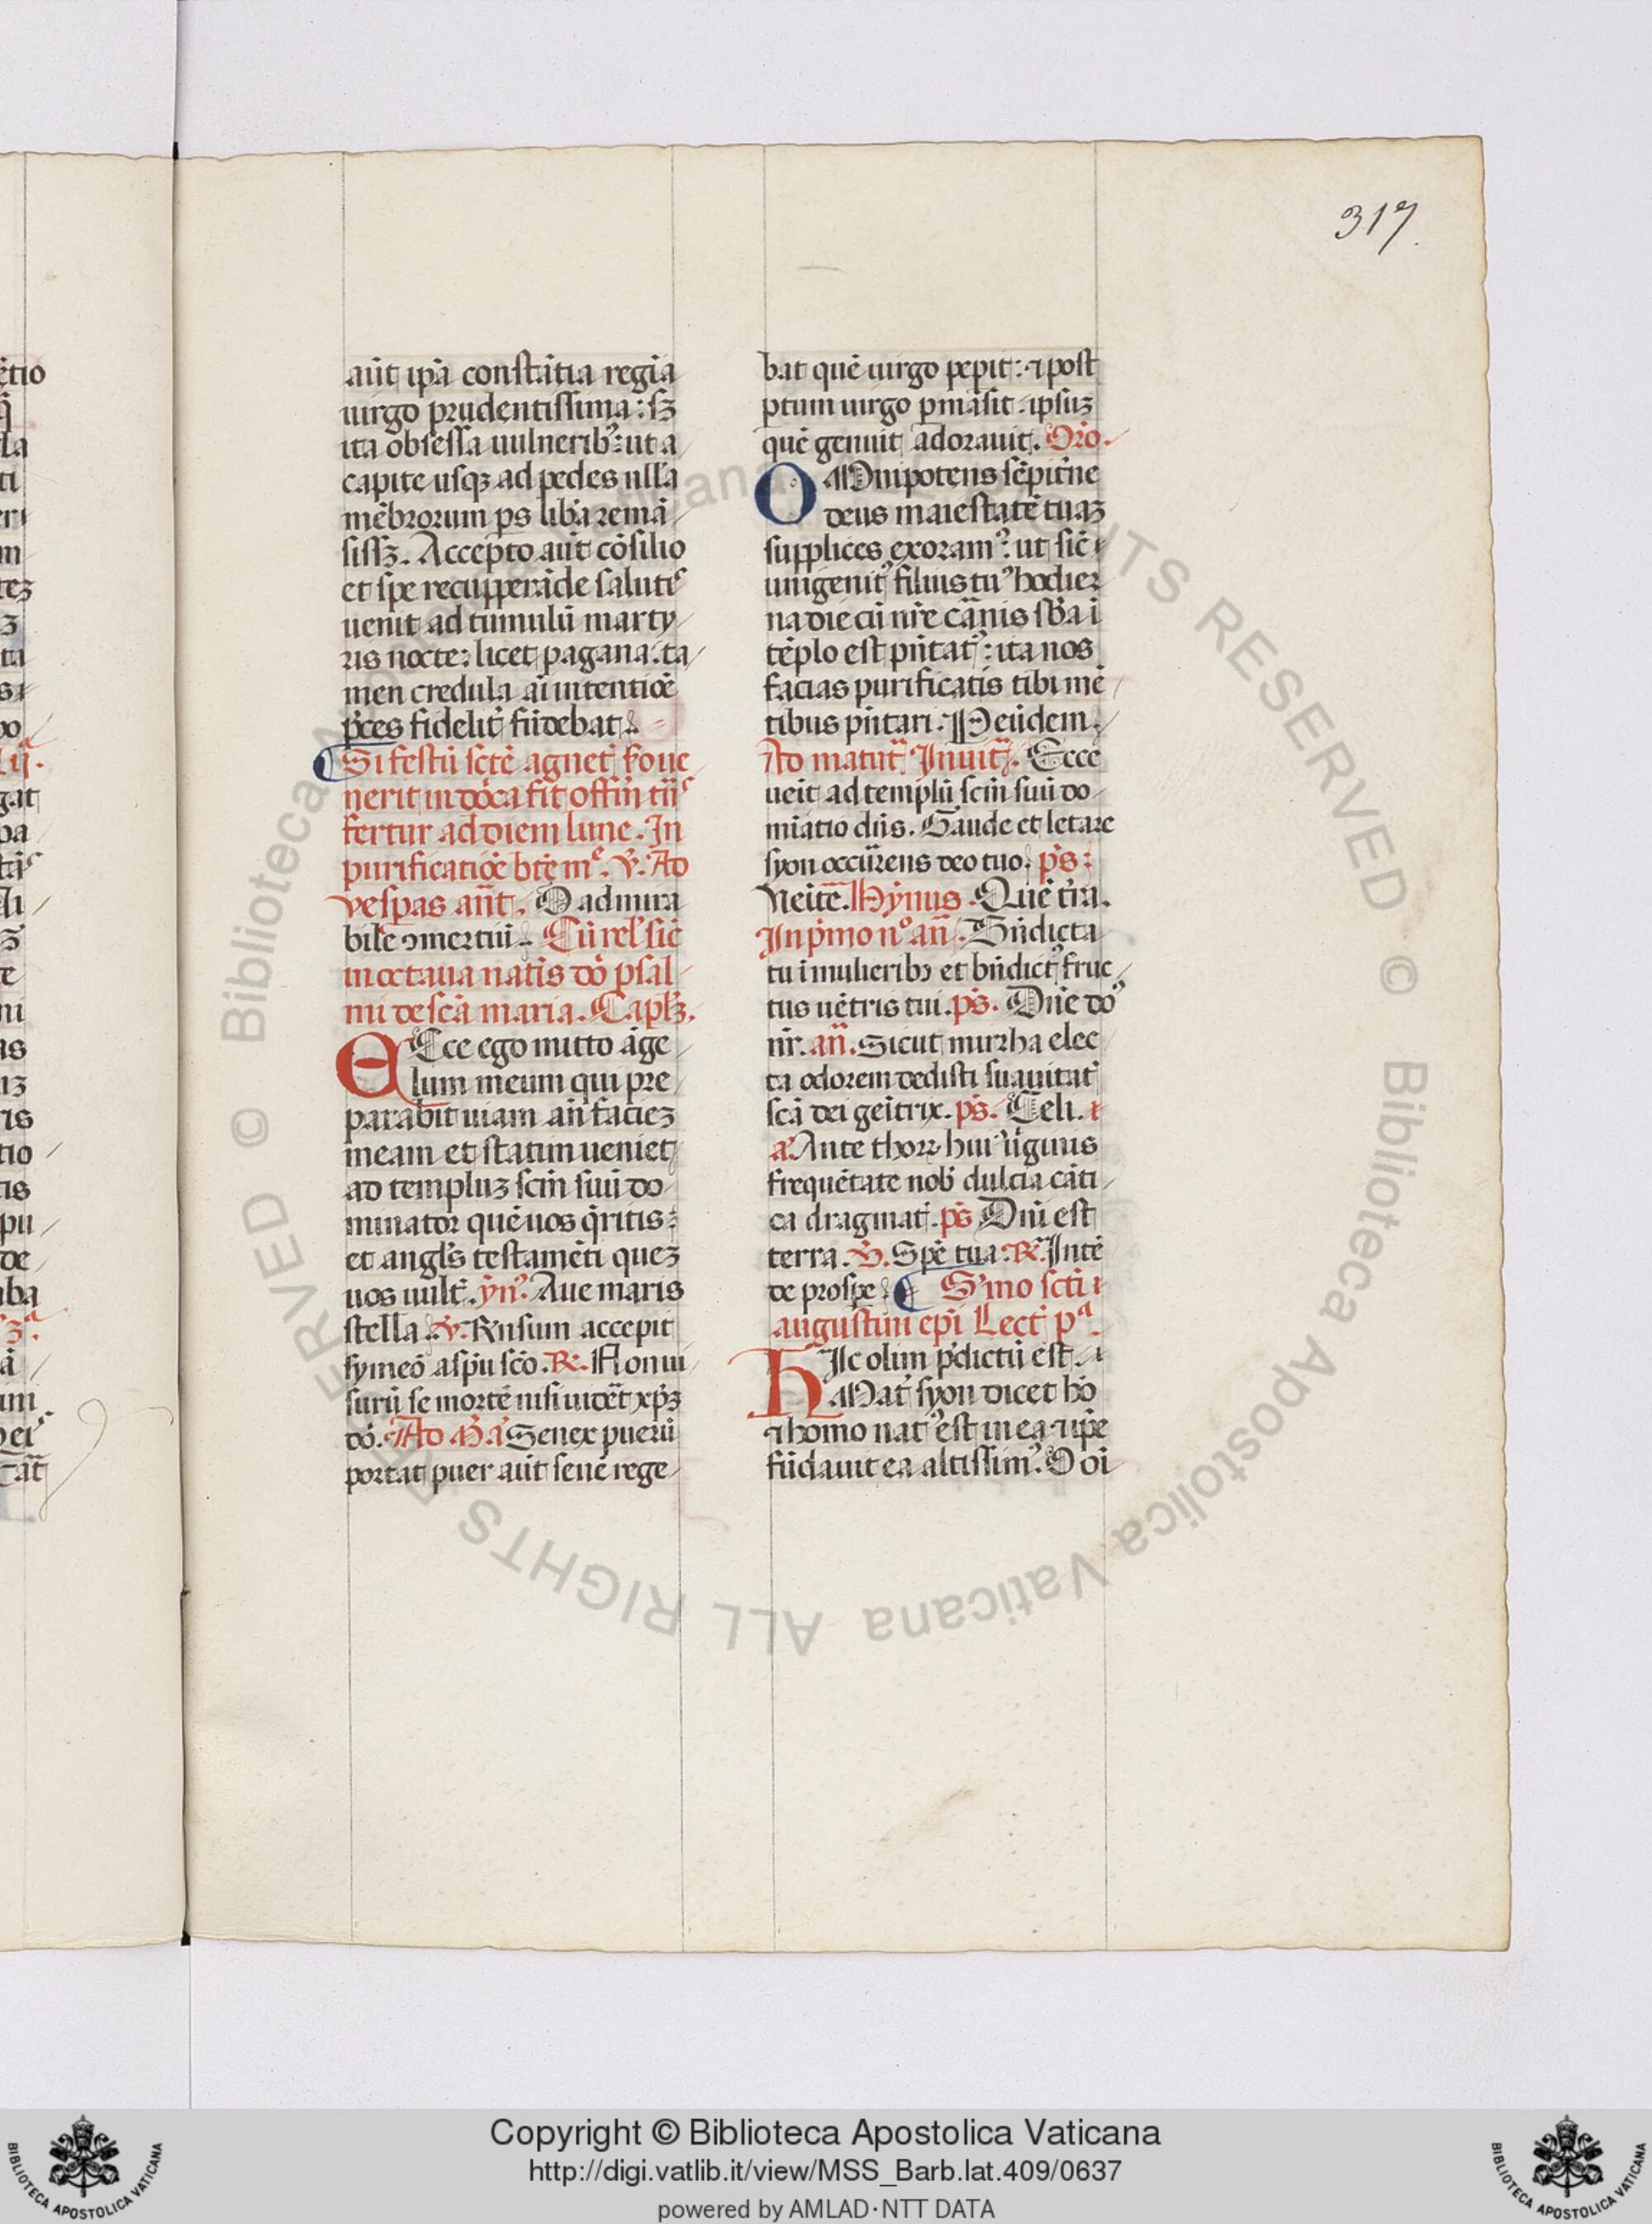 317
aūt ip̄a constātia regia
uirgo prudentissima: sꝫ
ita obsessa uulnerib᷒: ut a
capite usqꝫ ad pedes ulla
mēbrorum ps libā remā
sissꝫ. Accepto aūt cōsilio
et spe recupperāde saluti᷒
uenit ad tumulū marty
ris nocte: licet pagana. ta
men credula ai intentiōe
p̄ces fideliṫ fūdebat.
Si festū scte agnet ꝯue
nerit in dōca fit offm̄
fertur ad diem lune. In
purificatiōe bt̄e mͤ. ℣. Ad
vesp̄as an̄t. O admira
bile ꝯmertiū. Cū rel' sic̄
in octaua natis dō psal
mi de scā maria. Capl'ꝫ.
ECce ego mitto āge
lum meum qui pre
parabit uiam an̄ faciez
meam et statim ueniet
ad templuꝫ scm̄ suū do
minator quē uos q̄ritis:
et angl's testamēti queꝫ
uos uult'. yn᷒. Aue maris
stella. ℣. Rn̄sum accepit
symeō a sp̄u scō. ℟. Non ui
surū se mortē nisi uidēt xp̄ꝫ
dō. Ad M. a Senex puerū
portat puer aūt senē rege
bat quē uirgo peꝑit: ⁊ post
ptum uirgo ꝑmāsit. ipsuꝫ
quē genuit adorauit. Or̄o.
OMnipotens sēpit̄ne
deus maiestatē tuaꝫ
supplices exoram᷒: ut sic̄
unigenit᷒ filius tu᷒ hodier
na die cū nr̄e cānis sb̄a ī
tēplo est pn̄tat᷒: ita nos
facias purificatis tibi mē
tibus pn̄tari. P eūdem.
Ad matut̄ Inuit̄. Ecce
ueīt ad templū scm̄ suū do
mīatio dn̄s. Gaude et letare
syon occurrens deo tuo. p̄s:
Veīte. Hymus. Quē tr̄a.
In p̄mo n᷒ an̄. Bn̄dicta
tu ī mulieribꝫ et bn̄dict᷒ fruc
tus uētris tui. p̄s. Dn̄e do᷒
nr̄. an̄. Sicut mirrha elec
ta odorem dedisti suauitat'
scā dei geītrix. p̄s. Celi.
a᷒. Ante thorꝝ hui᷒ u̇ginis
frequētate nob' dulcia cāti
ca dragmat'. p̄s Dn̄i est
terra. ℣. Spē tua. ℟. Intē
de prospe. S'mo scti
augustini ep̄i Lect' pᵃ.
HIc olim p̄dictū est.
Mat' syon dicet hō
⁊ homo nat᷒ est in ea ⁊ ip̄e
fūdauit ea altissim᷒. O oī
Copyright © Biblioteca Apostolica Vaticana
http://digi.vatlib.it/view/MSS_Barb.lat.409/0637
powered by AMLAD·NTT DATA